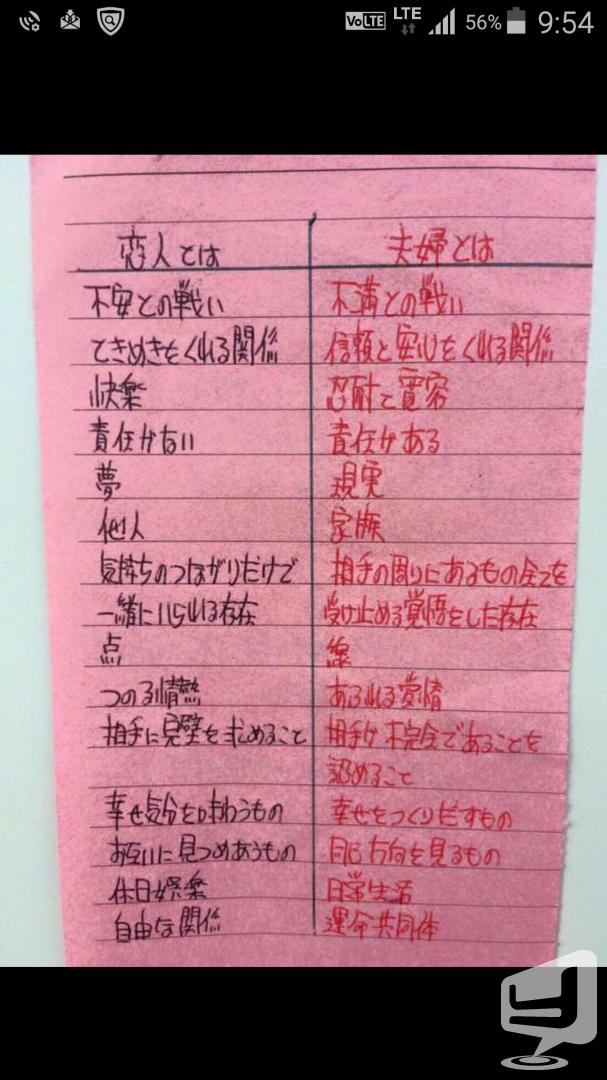 VoLTE LTE 56% 9:54
恋人とは 夫婦とは
不安との戦い 不満との戦い
ときめきをくれる関係 信頼と安心をくれる関係
快楽 忍耐と寛容
責任がない 責任がある
夢 現実
他人 家族
気持ちのつながりだけで 相手の周りにあるもの全てを
一緒にいられる存在 受け止める覚悟をした存在
点 線
つのる情熱 あふれる愛情
相手に完璧を求めること 相手が不完全であることを
認めること
幸せ気分を味わうもの 幸せをつくりだすもの
お互いに見つめあうもの 同じ方向を見るもの
休日娯楽 日常生活
自由な関係 運命共同体